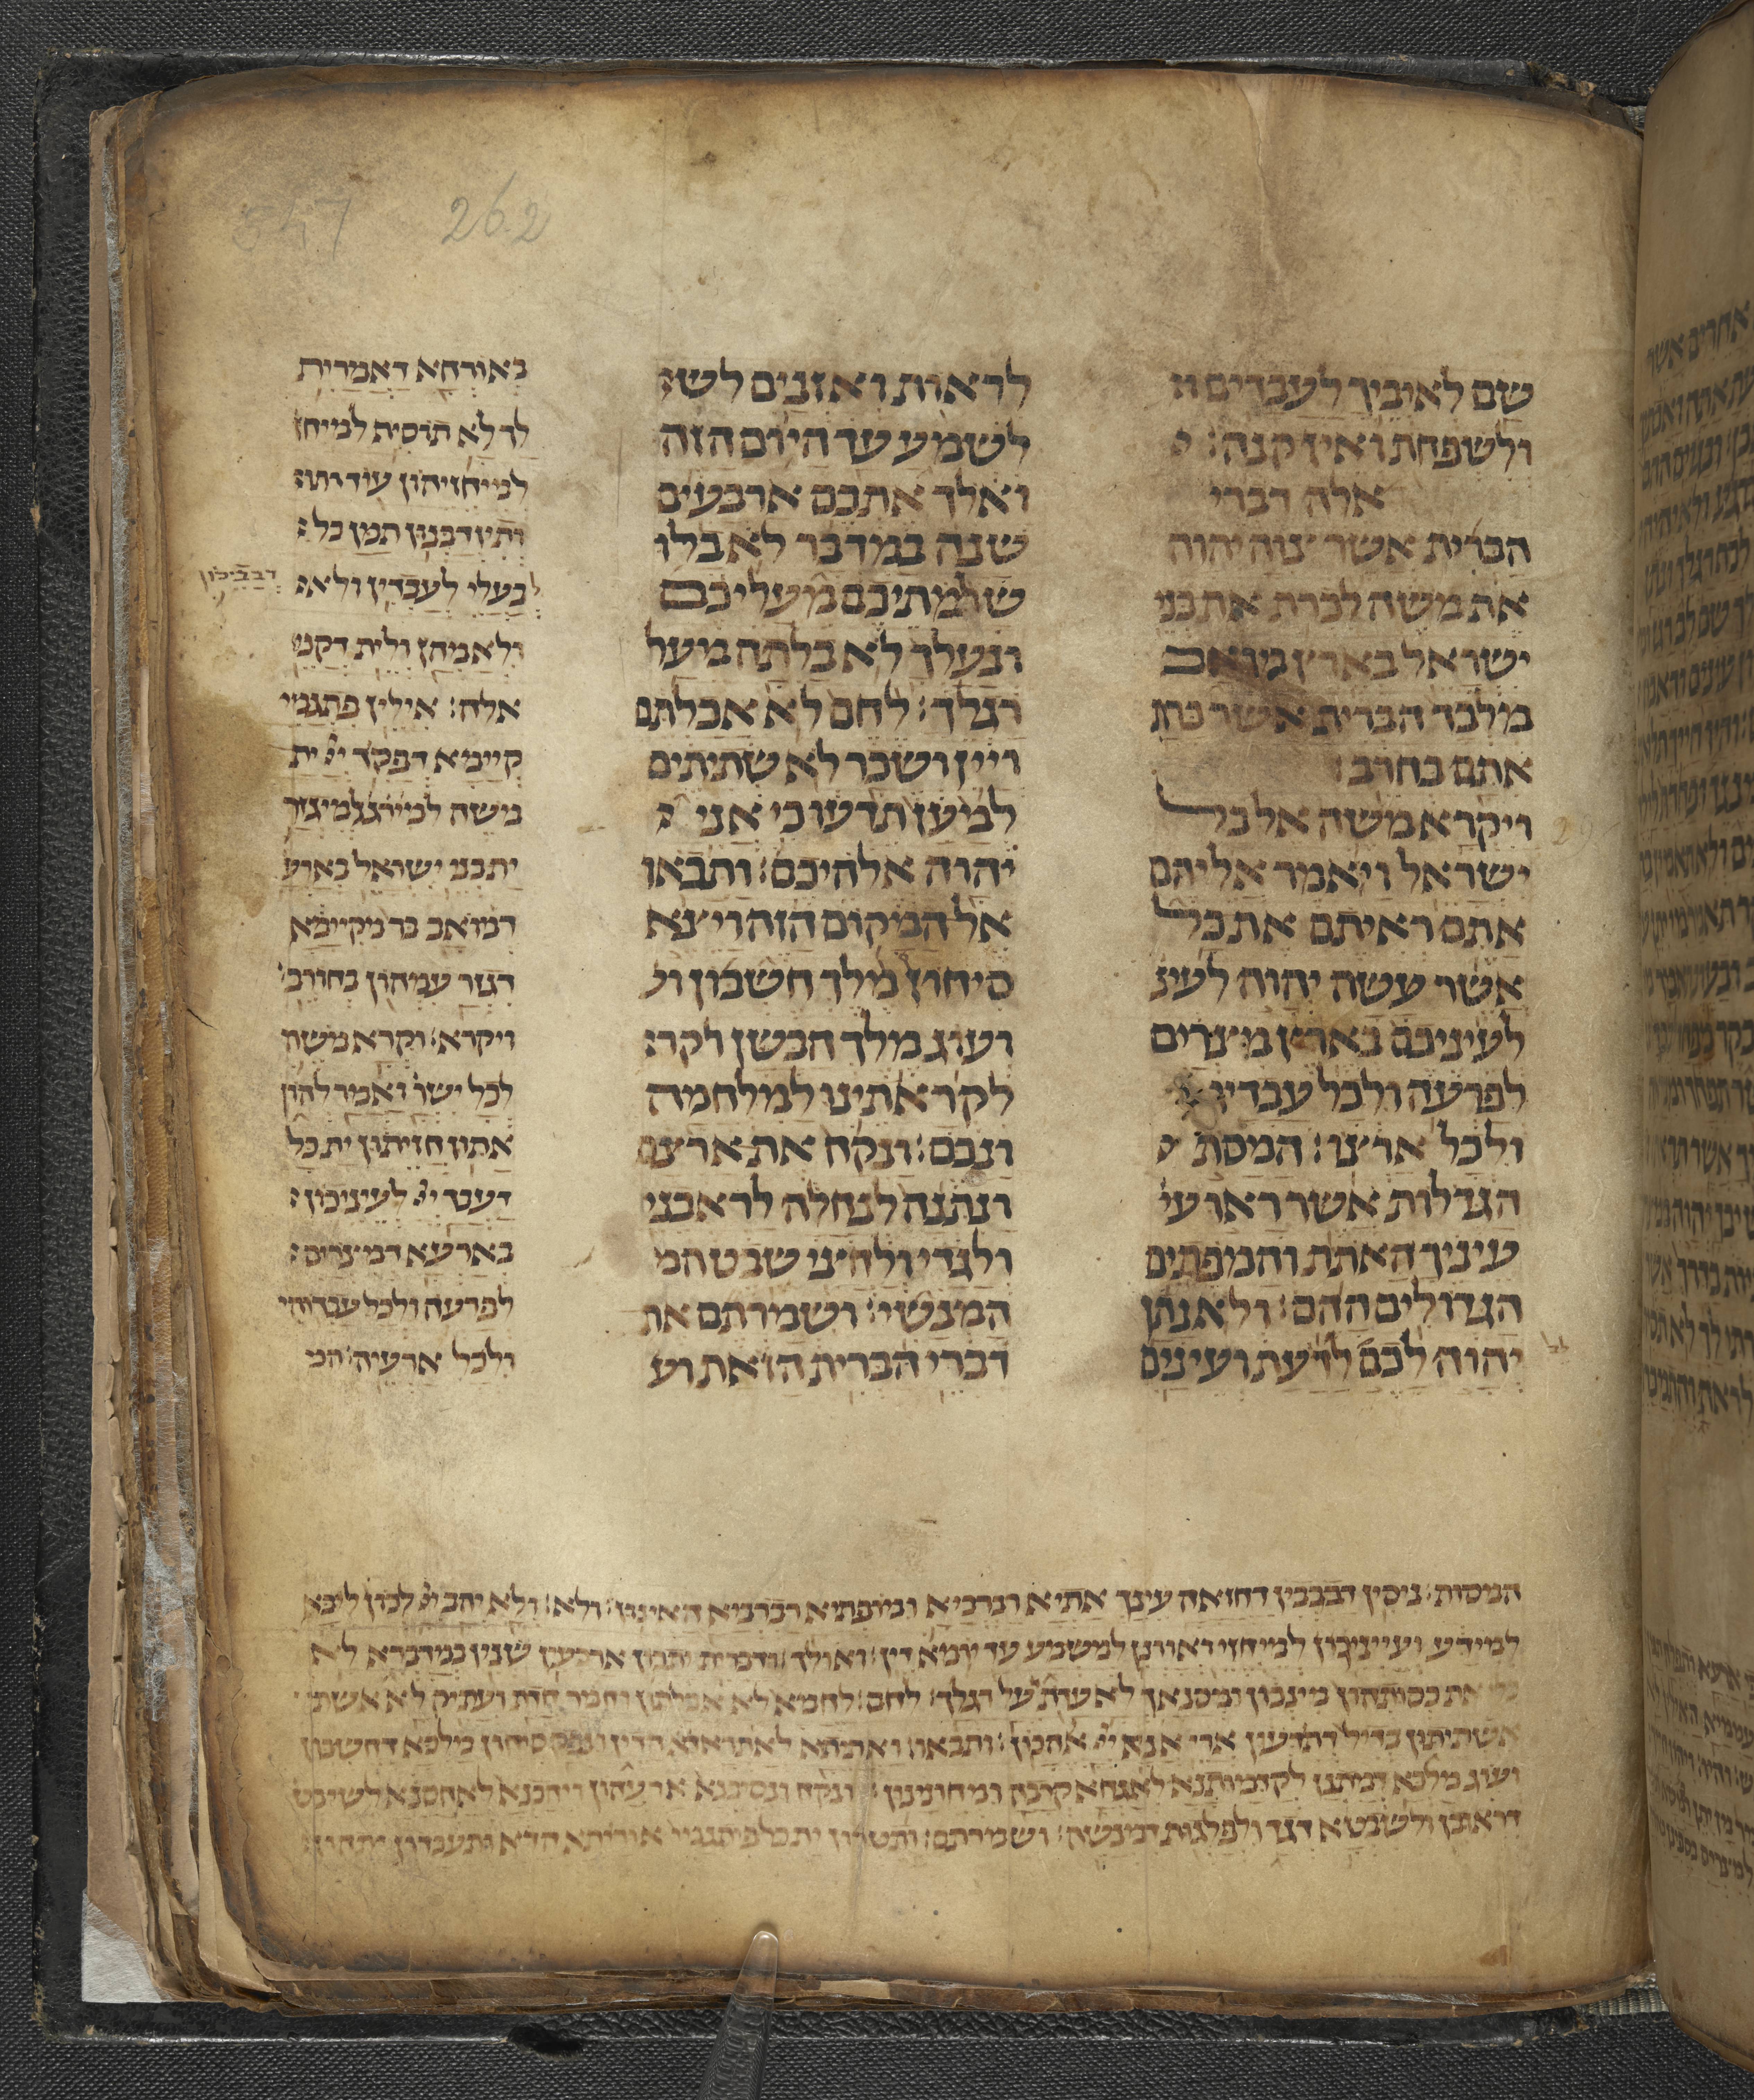 547 262
שם לאיביך לעבדים ו
ולשפחת ואין קנה:
אלה דברי
הברית אשר צוה יהוה
את משה לכרת את בני
ישראל בארץ מואב
מלבד הברית אשר כרת
אתם בחרב:
ויקרא משה אל כל
ישראל ויאמר אליהם
אתם ראיתם את כל
אשר עשה יהוה לעינ
לעיניכם בארץ מצרים
לפרעה ולכל עבדיו
ולכל ארצו: המסת
הגדלות אשר ראו עי
עיניך האתת והמפתים
הגדולים ההם: ולא נתן
יהוה לכם לדעת ועינים
לראות ואזנים לש
לשמע עד היום הזה
ואולך אתכם ארבעים
שנה במדבר לא בלו
שלמתיכם מעליכם
ונעלך לא בלתה מעל
רגלך: לחם לא אכלתם
ויין ושכר לא שתיתם
למען תדעו כי אני
יהוה אלהיכם: ותבאו
אל המקום הזה ויצא
סיחון מלך חשבון וע
ועוג מלך הבשן לקר
לקראתינו למלחמה
ונכם: ונקח את ארצם
ונתנה לנחלה לראובני
ולגדי ולחצי שבט המ
המנשי: ושמרתם את
דברי הברית הזאת וע
באורחא דאמרית
לך לא תוסיף למיחז
למיחזיהון עוד ותז
ותזדבנון תמן כל
לבעלי דבביכון לעבדין ולא
ולאמהן ולית דקני
אלה: אילין פתגמי
קיימא דפקיד יי ית
משה למיגזר
ית בני ישראל בארע
דמואב בר מקיימא
דגזר עמהון בחורב:
ויקרא: וקרא משה
לכל ישר ואמר להון
אתון חזיתון ית כל
דעבד יי לעיניכון
בארעא דמצרים
לפרעה ולכל עבדוהי
ולכל ארעיה: המ
המסות: ניסין רברבין דחזאה עינך אתיא ורברביא ומופתיא רברביא האינון: ולא: ולא יהב יי לכון ליבא
למידע ועיינין למיחזי ואודנין למשמע עד יומא דין: ואולך: ודברית יתכון ארבעין שנין במדברא לא
כסותכון מינכון ומסנאך לא עדת מעל רגלך: לחם: לחמא לא אכלתון וחמר חדת ועתיק לא אשת
אשתיתון בדיל דתדעון ארי אנא יי אלהכון: ותבאו: ואתיתא לאתרא הדין ונפק סיחון מלכא דחשבון
ועוג מלכא דמתנן לקדמותנא לאגחא קרבא ומחינונון: ונקח: ונסיבנא ית ארעהון ויהבנא לאחסנא לשיבט
דראובן ולשבטא דגד ולפלגות דמנשה: ושמרתם: ותטרון ית כל פיתגמי אוריתא הדא ותעבדון יתהון